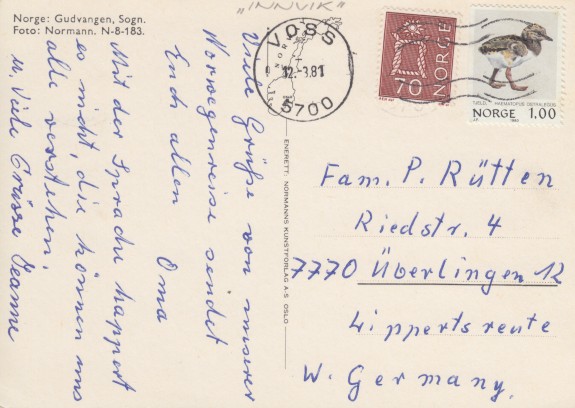 "INNVIK"
Norge: Gudvangen, Sogn.
Foto: Normann. N-8-183.
VOSS
NORGE
12.-3.81
5700
NORGE
70
TJELD, HAEMATOPUS OSTRALEGUS
NORGE 1.00
Viele Grüße von unserer
Norwegenreise sendet
Euch allen
Oma
Mit der Sprache happert
es nicht, die können uns
alle verstehen!
u. Viele Grüsse Jeanne
ENERETT: NORMANNS KUNSTFORLAG A-S OSLO
Fam. P. Rütten
Riedstr. 4
7770 Überlingen 12
Lippertsreute
W. Germany.